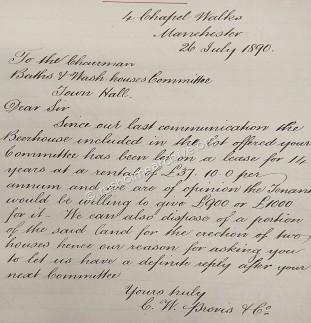 4 Chapel Walks
Manchester
26 July 1890.
To the Chairman
Baths & Wash houses Committee
Town Hall.
Dear Sir
Since our last communication the
Beerhouse included in the lot offered your
Committee has been let on a lease for 14
years at a rental of £37. 10. 0 per
annum and we are of opinion the Tenant
would be willing to give £900 or £1000
for it – We can also dispose of a portion
of the said land for the erection of two
houses hence our reason for asking you
to let us have a definite reply after your
next Committee
Yours truly
C. W. Provis & Co